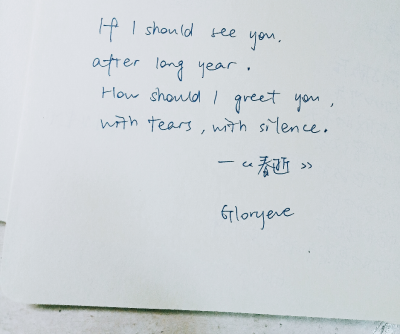 If I should see you,
after long year.
How should I greet you,
with tears, with silence.
—《春逝》
Gloryeve